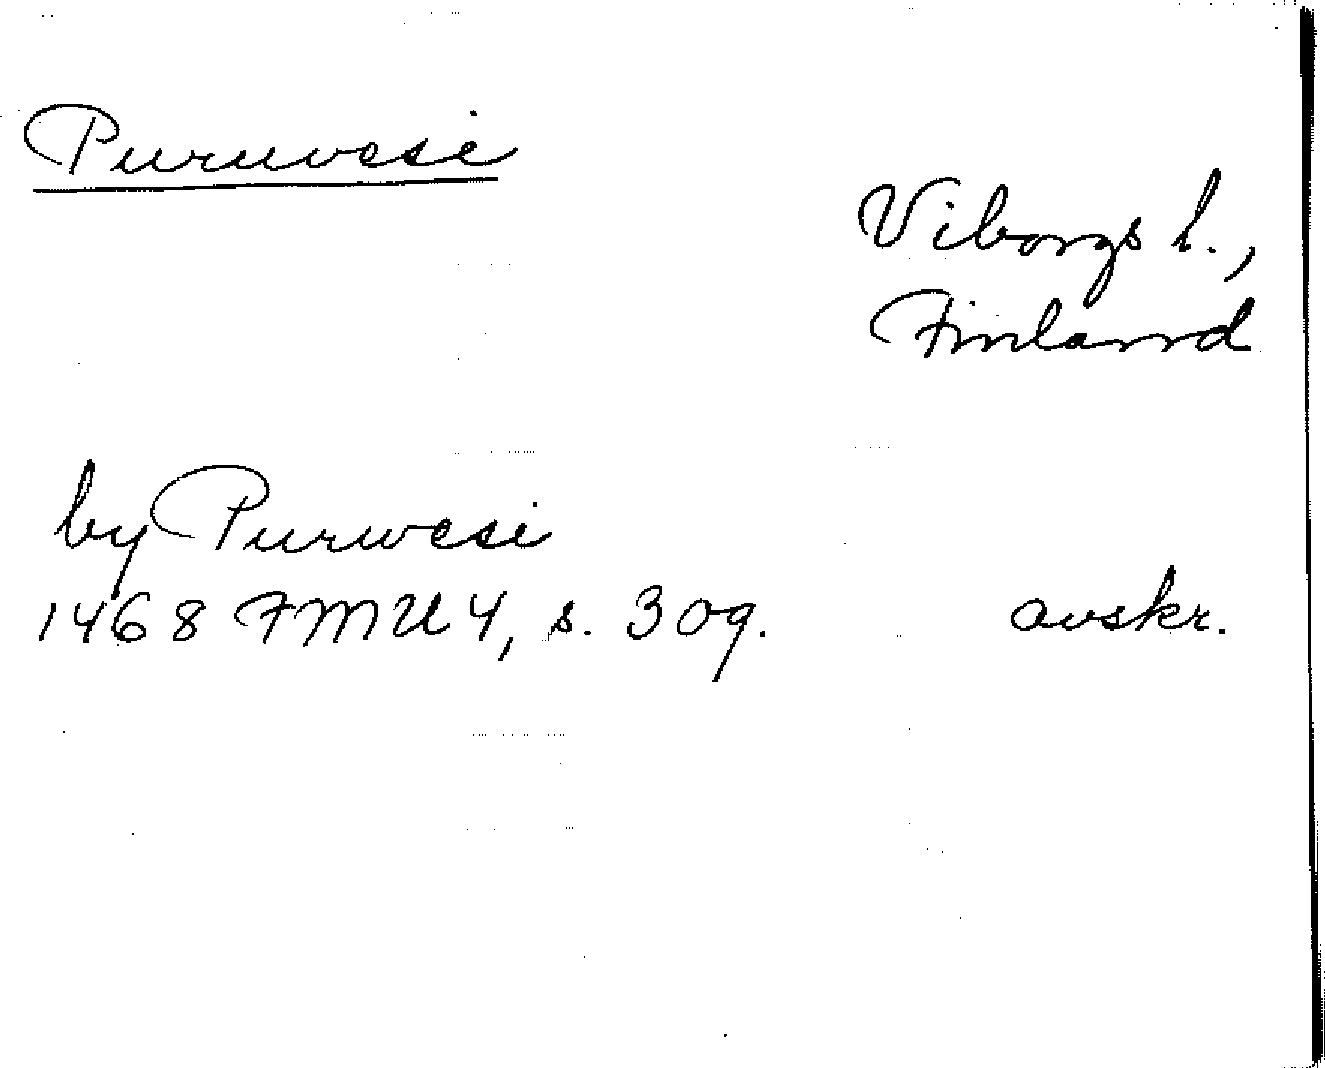 Puruvesi
Viborgs l.,
Finland
by Purwesi
1468 FMU 4, s. 309. avskr.